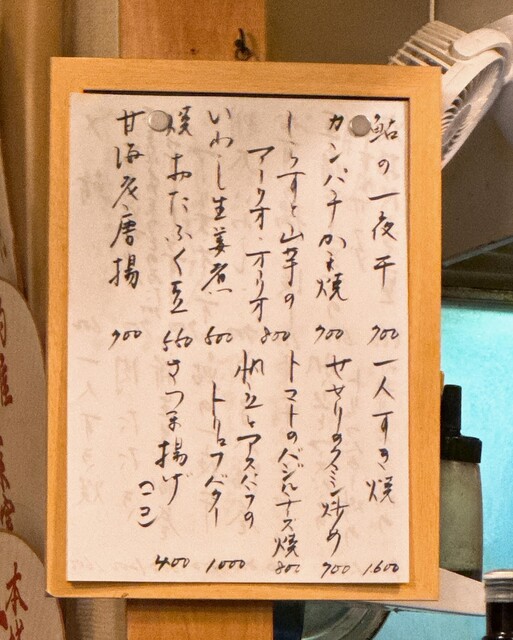 鮎の一夜干 900
カンパチかま焼 900
しらすと山芋の
アーリオ・オーリオ 800
いわし生姜煮 800
焼おたふく豆 550
甘海老唐揚 900
一人すき焼 1600
セセリのスミ炒め 900
トマトのバジルチーズ焼 800
帆立とアスパラの
トリュフバター 1000
さつま揚げ(二コ) 400
本